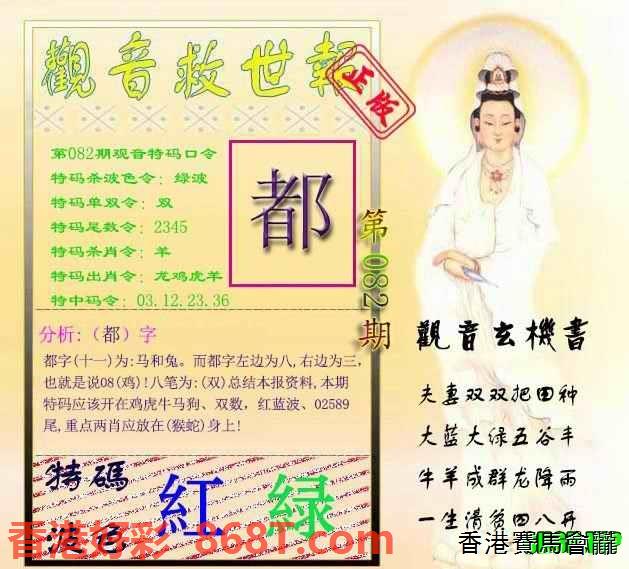 觀音救世報
正版
第082期观音特码口令
特码杀波色令：绿波
特码单双令：双
特码尾数令：2345
特码杀肖令：羊
特码出肖令：龙鸡虎羊
特中码令：03.12.23.36
都
第082期
分析：（都）字
都字(十一)为:马和兔。而都字左边为八,右边为三,
也就是说08(鸡)!八笔为:(双)总结本报资料,本期
特码应该开在鸡虎牛马狗、双数，红蓝波、02589
尾,重点两肖应放在(猴蛇)身上!
觀音玄機書
夫妻双双把田种
大蓝大绿五谷丰
牛羊成群龙降雨
一生清贫四八开
特碼
波色
紅
绿
香港好彩 868T.com
香港賽馬會